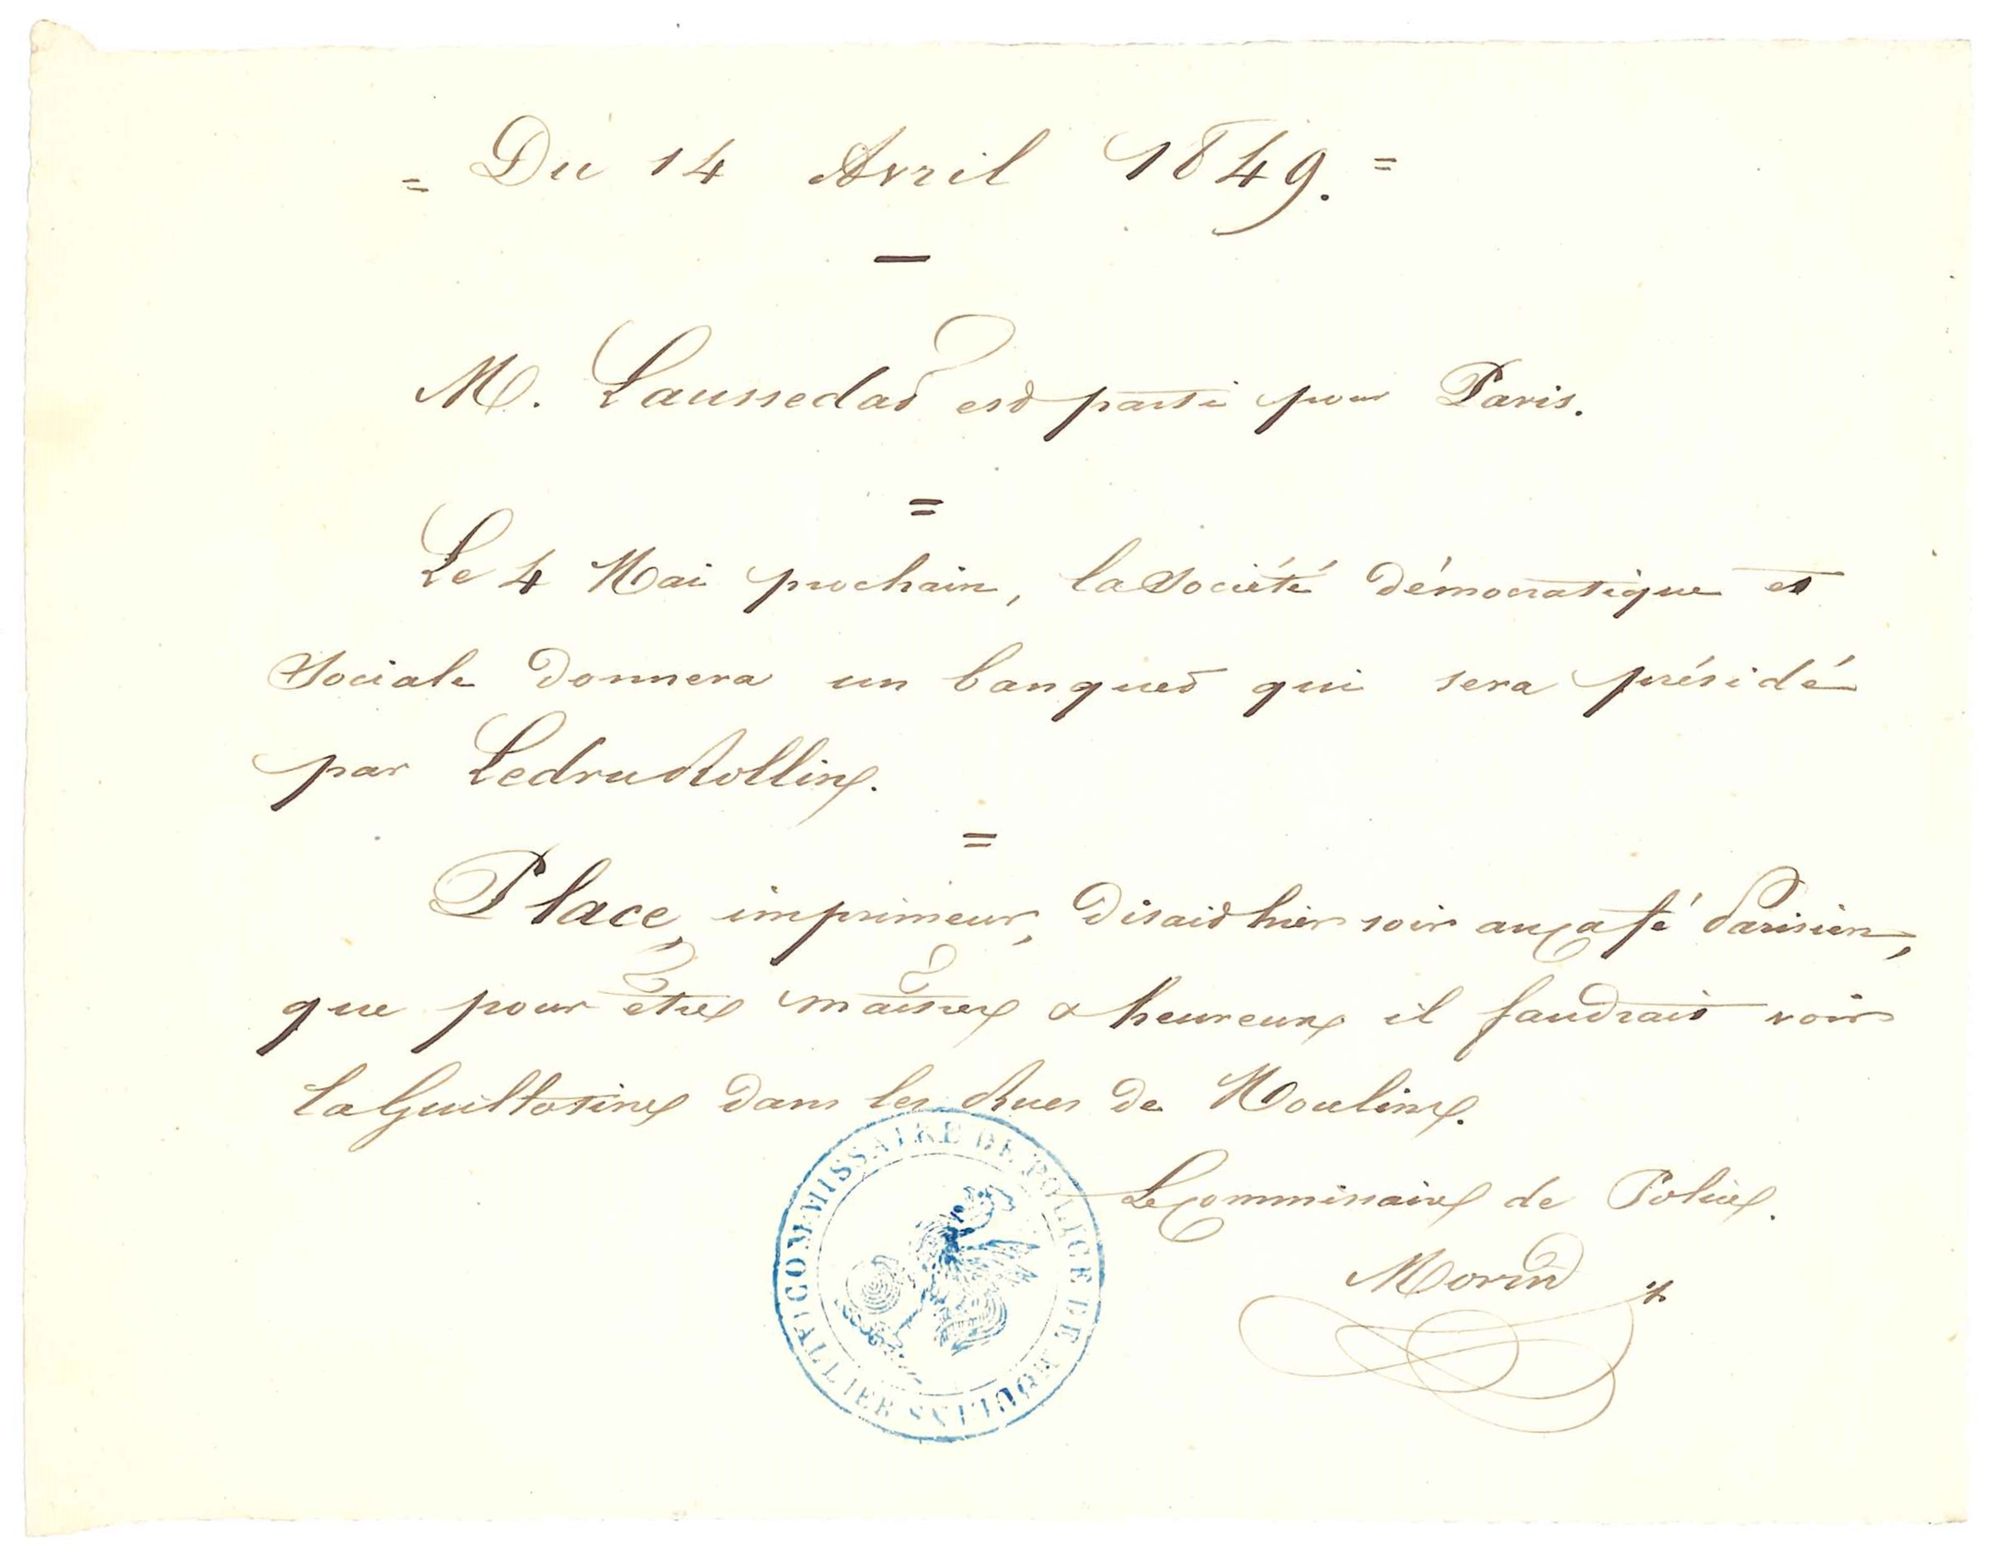 = Du 14 Avril 1849. =
M. Laussedat est parti pour Paris.
=
Le 4 Mai prochain, la Société démocratique et
Sociale donnera un banquet qui sera présidé
par Ledru Rollin.
=
Place, imprimeur, disait hier soir au Café Parisien,
que pour être maîtres & heureux il faudrait voir
la Guillotine dans les Rues de Moulins.
Le Commissaire de Police.
Morin
COMMISSAIRE DE POLICE DE MOULINS (ALLIER)